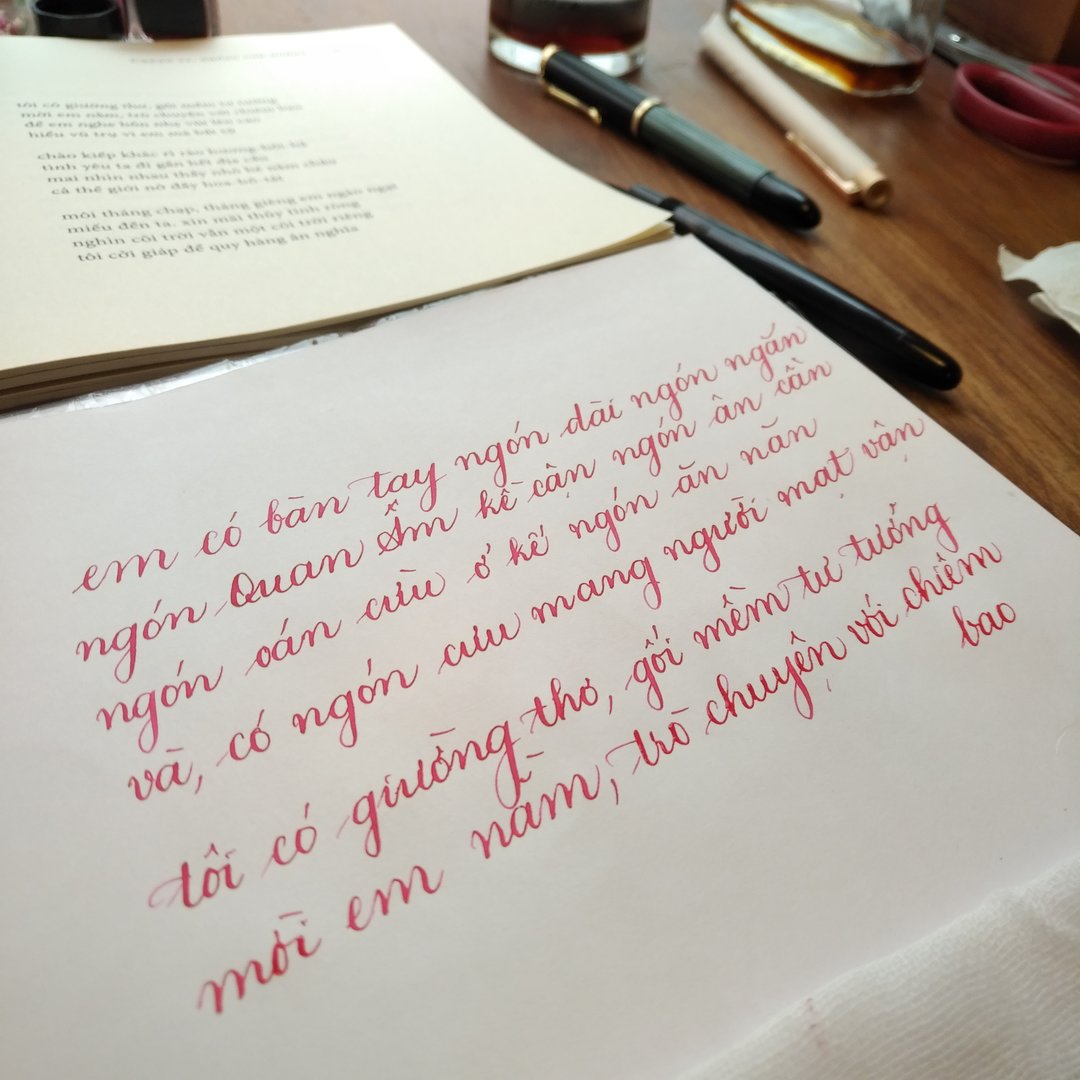 tôi có giường thơ, gối mềm tư tưởng
mời em nằm, trò chuyện với chiêm bao
để em nghe hồn nhẹ
hiểu vũ trụ vì em mà
chào kiếp khác rì rào
tình yêu ta đi gần hết địa cầu
mai nhìn nhau thấy nhỏ bé năm châu
cả thế giới nở đầy hoa bồ-tát
môi tháng chạp, tháng giêng em ngào ngạt
miếu đền ta. xin mãi thủy tinh ròng
nghìn cõi trời vẫn một cõi trời riêng
tôi cởi giáp để quy hàng ân nghĩa
em có bàn tay ngón dài ngón ngắn
ngón Quan Âm kề cận ngón ân cần
ngón oán cừu ở kế ngón ăn năn
và, có ngón cưu mang người mạt vận
tôi có giường thơ, gối mềm tư tưởng
mời em nằm, trò chuyện với chiêm
bao